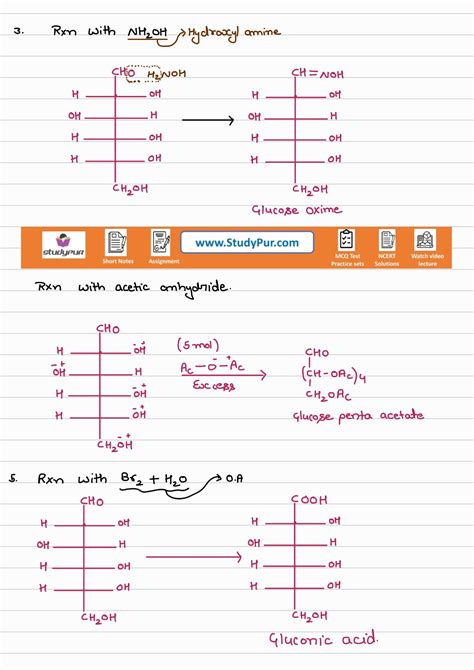 3. Rxn with NH2OH → Hydroxyl amine
CHO H2NOH CH=NOH
H OH H OH
OH H → OH H
H OH H OH
H OH H OH
CH2OH CH2OH
Glucose oxime
studypur Short Notes Assignment www.StudyPur.com MCQ Test Practice sets NCERT Solutions Watch video lecture
Rxn with acetic anhydride.
CHO
H -OH+ (5 mol) CHO
-OH+ H Ac-O-Ac → (CH-OAc)4
H -OH+ Excess CH2OAc
H -OH+ Glucose penta acetate
CH2OH
5. Rxn with Br2 + H2O → O.A
CHO COOH
H OH H OH
OH H OH H
H OH → H OH
H OH H OH
CH2OH CH2OH
Gluconic acid.